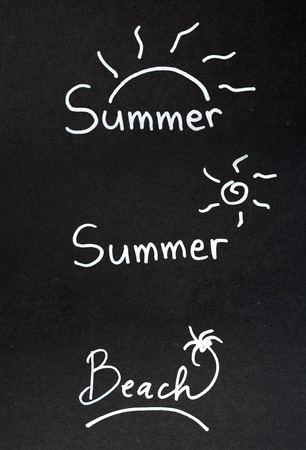 Summer
Summer
Beach